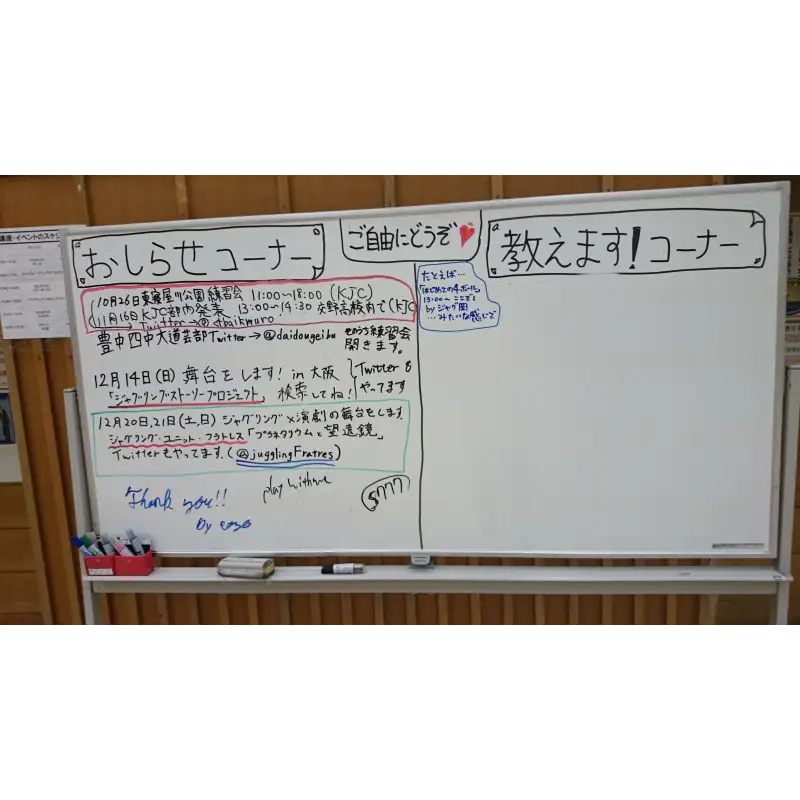 講座・イベントのスケジ
おしらせコーナー
ご自由にどうぞ
教えます!コーナー
10月26日東寝屋川公園練習会 11:00〜18:00 (KJC)
11月16日KJC部内発表 13:00〜14:30 交野高校内で(KJC
Twitter→@
豊中四中大道芸部Twitter→@daidougeibu そのうち練習会
開きます。
12月14日(日) 舞台をします! in 大阪
「ジャグリング・ストーリープロジェクト」検索してね!
Twitterも
やってます
12月20日,21日(土,日) ジャグリング×演劇の舞台をします。
ジャグリング・ユニット・フラトレス「プラネタリウムと望遠鏡」
Twitterもやってます。(@jugglingFratres)
Thank you!!
by
play with me
たとえば…
「はじめての4ボール」
13:00〜 ここで!
by ジャグ
…みたいな感じで